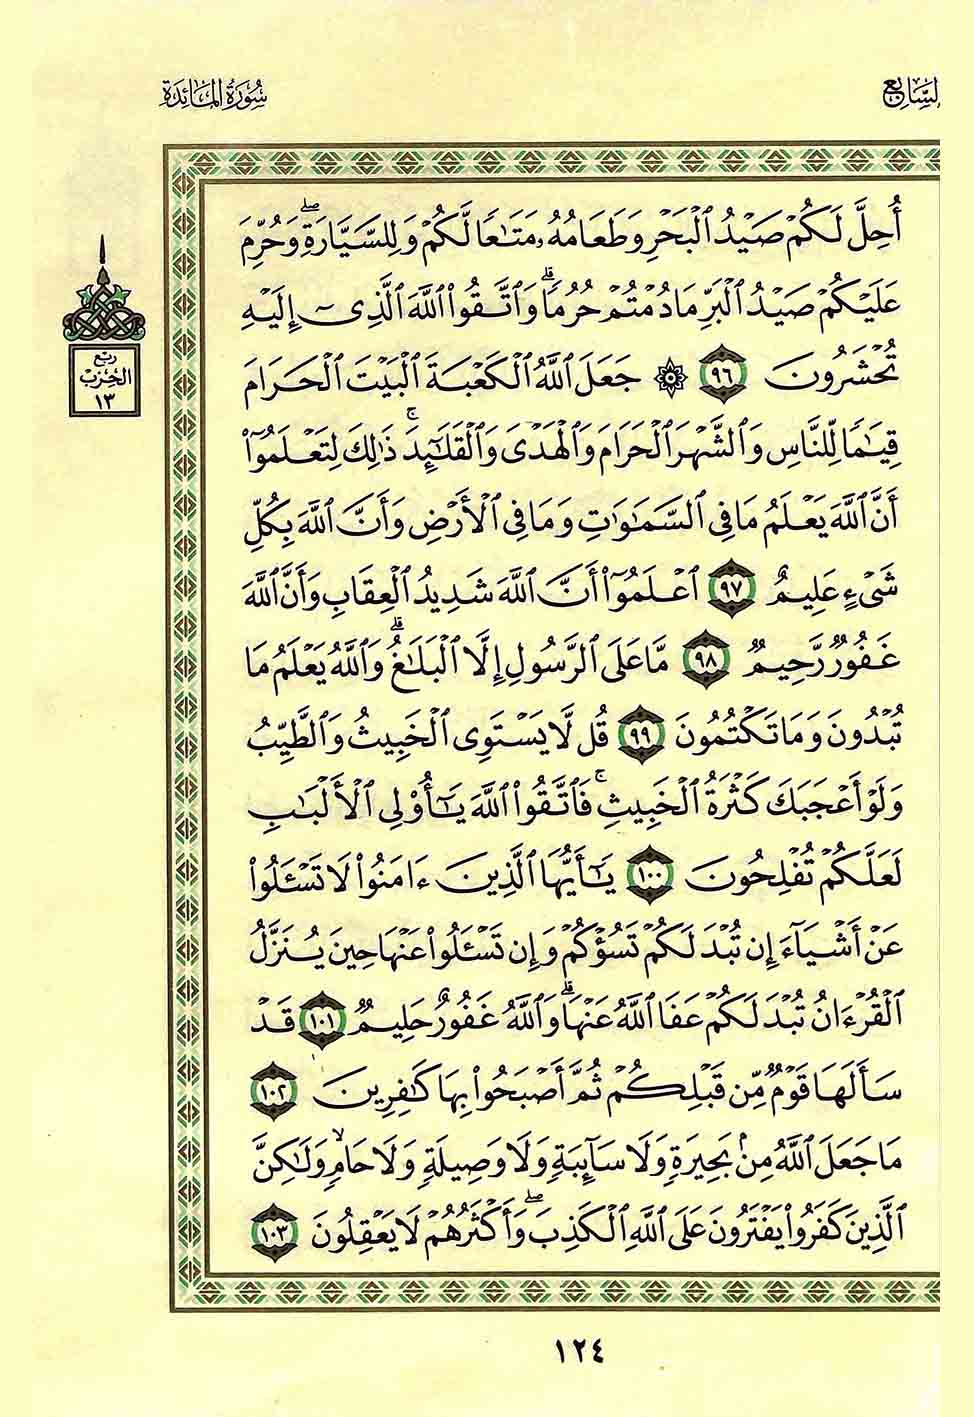 لسَّابِع
سُورَةُ المَائِدَةِ
أُحِلَّ لَكُمْ صَيْدُ ٱلْبَحْرِ وَطَعَامُهُۥ مَتَـٰعًا لَّكُمْ وَلِلسَّيَّارَةِ ۖ وَحُرِّمَ
عَلَيْكُمْ صَيْدُ ٱلْبَرِّ مَا دُمْتُمْ حُرُمًا ۗ وَٱتَّقُوا۟ ٱللَّهَ ٱلَّذِىٓ إِلَيْهِ
تُحْشَرُونَ ٩٦ ۞ جَعَلَ ٱللَّهُ ٱلْكَعْبَةَ ٱلْبَيْتَ ٱلْحَرَامَ
قِيَـٰمًا لِّلنَّاسِ وَٱلشَّهْرَ ٱلْحَرَامَ وَٱلْهَدْىَ وَٱلْقَلَـٰٓئِدَ ۚ ذَٰلِكَ لِتَعْلَمُوٓا۟
أَنَّ ٱللَّهَ يَعْلَمُ مَا فِى ٱلسَّمَـٰوَٰتِ وَمَا فِى ٱلْأَرْضِ وَأَنَّ ٱللَّهَ بِكُلِّ
شَىْءٍ عَلِيمٌ ٩٧ ٱعْلَمُوٓا۟ أَنَّ ٱللَّهَ شَدِيدُ ٱلْعِقَابِ وَأَنَّ ٱللَّهَ
غَفُورٌ رَّحِيمٌ ٩٨ مَّا عَلَى ٱلرَّسُولِ إِلَّا ٱلْبَلَـٰغُ ۗ وَٱللَّهُ يَعْلَمُ مَا
تُبْدُونَ وَمَا تَكْتُمُونَ ٩٩ قُل لَّا يَسْتَوِى ٱلْخَبِيثُ وَٱلطَّيِّبُ
وَلَوْ أَعْجَبَكَ كَثْرَةُ ٱلْخَبِيثِ ۚ فَٱتَّقُوا۟ ٱللَّهَ يَـٰٓأُو۟لِى ٱلْأَلْبَـٰبِ
لَعَلَّكُمْ تُفْلِحُونَ ١٠٠ يَـٰٓأَيُّهَا ٱلَّذِينَ ءَامَنُوا۟ لَا تَسْـَٔلُوا۟
عَنْ أَشْيَآءَ إِن تُبْدَ لَكُمْ تَسُؤْكُمْ وَإِن تَسْـَٔلُوا۟ عَنْهَا حِينَ يُنَزَّلُ
ٱلْقُرْءَانُ تُبْدَ لَكُمْ عَفَا ٱللَّهُ عَنْهَا ۗ وَٱللَّهُ غَفُورٌ حَلِيمٌ ١٠١ قَدْ
سَأَلَهَا قَوْمٌ مِّن قَبْلِكُمْ ثُمَّ أَصْبَحُوا۟ بِهَا كَـٰفِرِينَ ١٠٢
مَا جَعَلَ ٱللَّهُ مِنۢ بَحِيرَةٍ وَلَا سَآئِبَةٍ وَلَا وَصِيلَةٍ وَلَا حَامٍ ۙ وَلَـٰكِنَّ
ٱلَّذِينَ كَفَرُوا۟ يَفْتَرُونَ عَلَى ٱللَّهِ ٱلْكَذِبَ ۖ وَأَكْثَرُهُمْ لَا يَعْقِلُونَ ١٠٣
ربع
الحزب
١٣
١٢٤